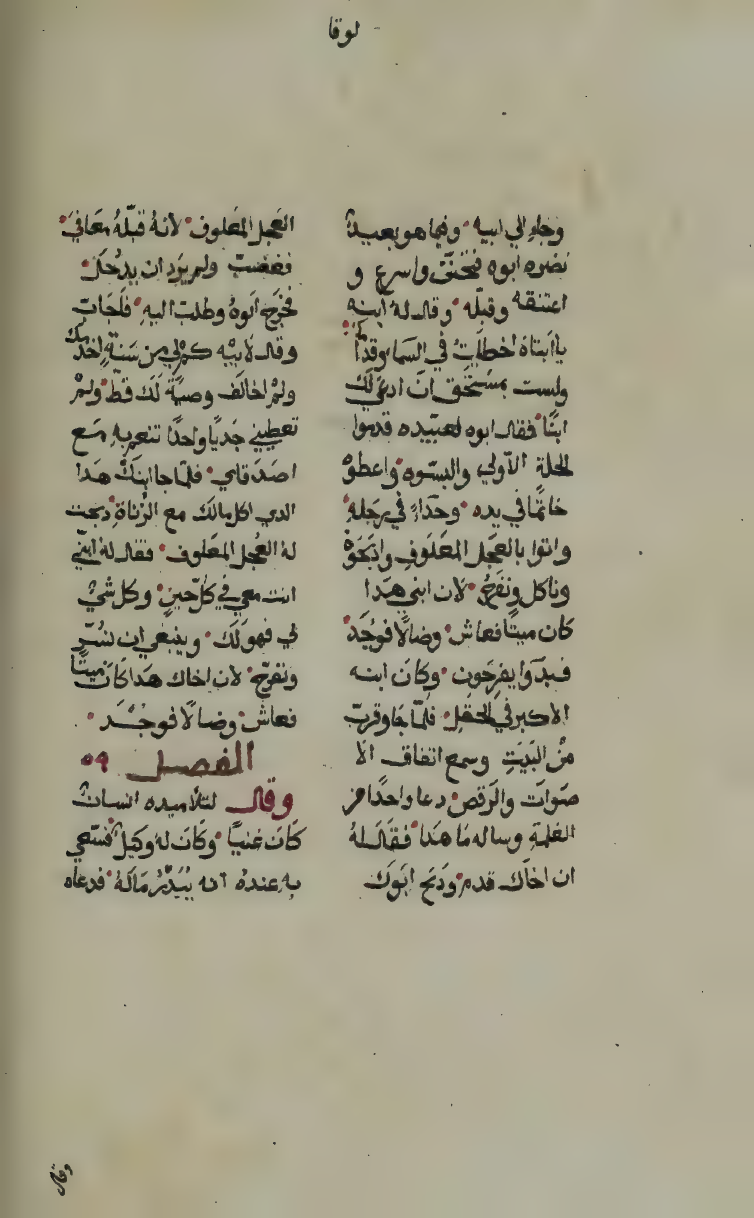 لوقا
وجا الي ابيه وفيما هو بعيدًا
نضره ابوه فتحنن واسرع و
اعتنقه وقبله وقال له ابنه
يا ابتاه اخطات في السما وقدامك
ولست بمستحق ان ادعي لك
ابنًا فقال ابوه لعبيده قدموا
الحلة الاولي والبسوه واعطوه
خاتمًا في يده وحذاء في رجله
واتوا بالعجل المعلوف واذبحوه
وناكل ونفرح لان ابني هدا
كان ميتًا فعاش وضالًا فوجد
فبدوا يفرحون وكان ابنه
الاكبر في الحقل فلما جا وقرب
من البيت وسمع اتفاق الا
صوات والرقص دعا واحدًا من
الغلمة وساله ما هدا فقال له
ان اخاك قدم ودبح ابوك
العجل المعلوف لانه قبله معافي
فغضب ولم يرد ان يدخل
فخرج ابوه وطلب اليه فاجاب
وقال لابيه كم لي من سنة اخدمك
ولم اخالف وصية لك قط ولم
تعطيني جديًا واحدًا تنعم به مع
اصدقاي فلما جا ابنك هدا
الدي اكل مالك مع الزناة دبحت
له العجل المعلوف فقال له ابني
انت معي في كل حين وكل شي
لي فهو لك وينبغي ان نسر
ونفرح لان اخاك هدا كان ميتًا
فعاش وضالًا فوجد
الفصل ٥٩
وقال لتلاميده انسان
كان غنيًا وكان له وكيل فسعي
به عنده انه يبذر ماله فدعاه
وقال